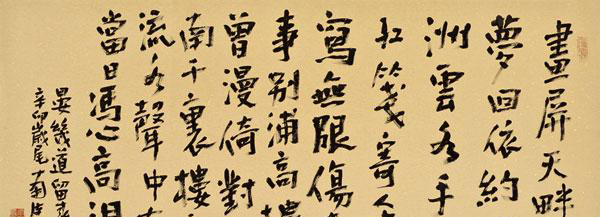 畫屏天畔
夢回依約
洲雲水手
紅箋寄人
寫無限傷
事別浦高樓
曾漫倚對
南千裏樓
流水聲中有
當日憑高淚
晏幾道留春
辛卯歲尾